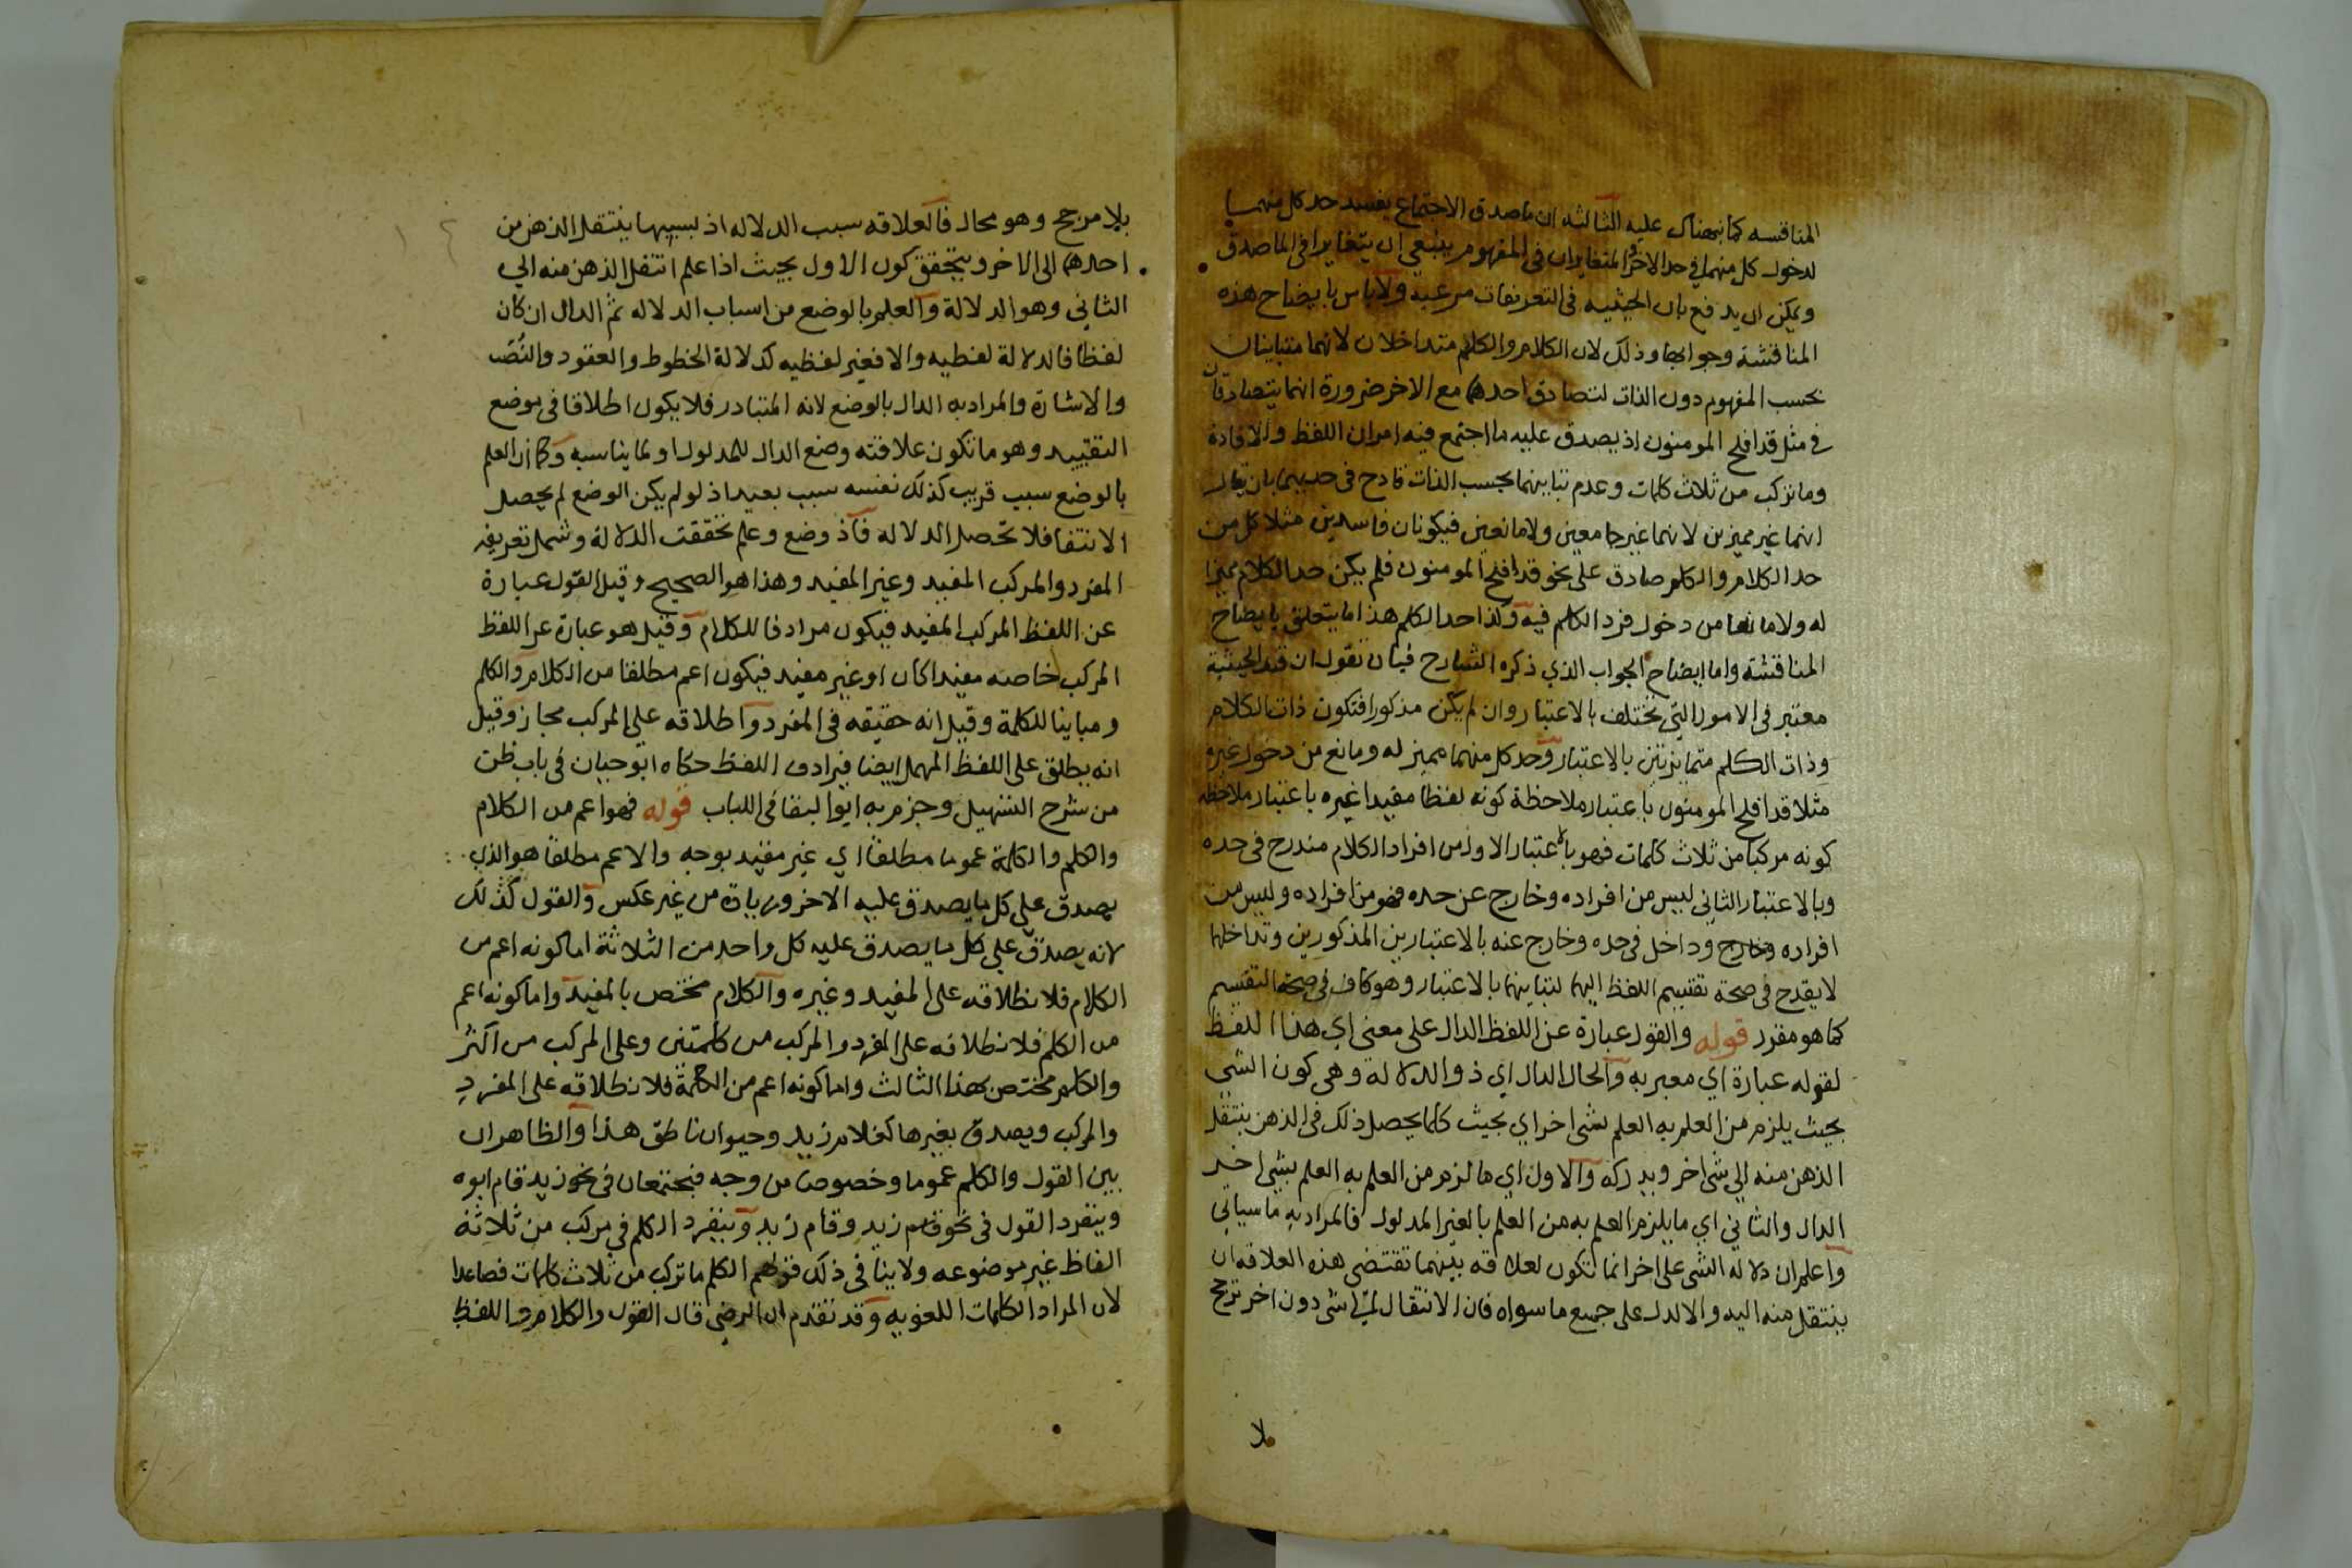 المناقسه كما نبهناك عليه الثالثه ان ما صدق الاجتماع يفسد حد كل منهما
لدخول كل منهما في حد الاخر والمتغايران في المفهوم ينبغي ان يتغايرا في الماصدق
ويمكن ان يدفع بان الحيثيه في التعريفات مرعيه ولا باس بايضاح هذه
المناقشة وجوابها وذلك لان الكلام والكلم متداخلان لانهما متباينان
بحسب المفهوم دون الذات لتصادق احدهما مع الاخر ضرورة انهما يتصادقان
في مثل قد افلح المومنون اذ يصدق عليه ما اجتمع فيه امران اللفظ والافادة
وما تركب من ثلاث كلمات وعدم تباينهما بحسب الذات قادح في حديهما بان يقال
انهما غير مميزين لانهما غير جامعين ولا مانعين فيكونان فاسدين مثلا كل من
حد الكلام والكلم صادق على نحو قد افلح المومنون فلم يكن حد الكلام مميزا
له ولا مانعا من دخول فرد الكلم فيه وكذا حد الكلم هذا ما يتعلق بايضاح
المناقشة واما ايضاح الجواب الذي ذكره الشارح فبان نقول ان قيد الحيثية
معتبر في الامور التي تختلف بالاعتبار وان لم يكن مذكورا فتكون ذات الكلام
وذات الكلم متمايزتين بالاعتبار وحد كل منهما مميز له ومانع من دخول غيره
مثلا قد افلح المومنون باعتبار ملاحظة كونه لفظا مفيدا غيره باعتبار ملاحظة
كونه مركبا من ثلاث كلمات فهو بالاعتبار الاول من افراد الكلام مندرج في حده
وبالاعتبار الثاني ليس من افراده وخارج عن حده فهو من افراده وليس من
افراده وخارج وداخل في حده وخارج عنه بالاعتبارين المذكورين وتداخلهما
لا يقدح في صحة تقسيم اللفظ اليهما لتباينهما بالاعتبار وهو كاف في صحة التقسيم
كما هو مقرر قوله والقول عبارة عن اللفظ الدال على معنى اي هذا اللفظ
لقوله عبارة اي معبر به والحال الدال اي ذو الدلالة وهي كون الشي
بحيث يلزم من العلم به العلم بشي اخر اي بحيث كلما يحصل ذلك في الذهن ينتقل
الذهن منه الى شي اخر ويدركه والاول اي ما لزم من العلم به العلم بشي اخر
الدال والثاني اي ما يلزم العلم به من العلم بالغير المدلول فالمراد به ما سياتي
واعلم ان دلالة الشي على اخر انما تكون لعلاقه بينهما تقتضي هذه العلاقه ان
ينتقل منه اليه والالدل على جميع ما سواه فان الانتقال لشي دون اخر ترجيح
لا
بلا مرجح وهو محال فالعلاقه سبب الدلاله اذ بسببها ينتقل الذهن من
احدهما الى الاخر ويتحقق كون الاول بحيث اذا علم انتقل الذهن منه الي
الثاني وهو الدلالة والعلم بالوضع من اسباب الدلاله ثم الدال ان كان
لفظا فالدلالة لفظيه والا فغير لفظيه كدلالة الخطوط والعقود والنصب
والاشارة والمراد به الدال بالوضع لانه المتبادر فلا يكون اطلاقا في موضع
التقييد وهو ما تكون علاقته وضع الدال للمدلول او لما يناسبه وكما ان العلم
بالوضع سبب قريب كذلك نفسه سبب بعيد اذ لو لم يكن الوضع لم يحصل
الانتفا فلا تحصل الدلاله فاذ وضع وعلم تحققت الدلالة وشمل تعريفه
المفرد والمركب المفيد وغير المفيد وهذا هو الصحيح وقيل القول عبارة
عن اللفظ المركب المفيد فيكون مرادفا للكلام وقيل هو عبارة عن اللفظ
المركب خاصه مفيدا كان او غير مفيد فيكون اعم مطلقا من الكلام والكلم
ومباينا للكلمة وقيل انه حقيقه في المفرد واطلاقه علي المركب مجاز وقيل
انه يطلق على اللفظ المهمل ايضا فيرادف اللفظ حكاه ابو حيان في باب ظن
من شرح التسهيل وجزم به ابو البقا في اللباب قوله فهو اعم من الكلام
والكلم والكلمة عموما مطلقا اي غير مقيد بوجه والاعم مطلقا هو الذي
يصدق على كل ما يصدق عليه الاخر وزيادة من غير عكس والقول كذلك
لانه يصدق على كل ما يصدق عليه كل واحد من الثلاثة اما كونه اعم من
الكلام فلانطلاقه على المفيد وغيره والكلام مختص بالمفيد واما كونه اعم
من الكلم فلانطلاقه على المفرد والمركب من كلمتين وعلى المركب من اكثر
والكلم مختص بهذا الثالث واما كونه اعم من الكلمة فلانطلاقه على المفرد
والمركب ويصدق بغيرها كغلام زيد وحيوان ناطق هذا والظاهر ان
بين القول والكلم عموما وخصوصا من وجه فيجتمعان في نحو زيد قام ابوه
وينفرد القول في نحو قام زيد وقام زيد وينفرد الكلم في مركب من ثلاثة
الفاظ غير موضوعه ولا ينافي ذلك قولهم الكلم ما تركب من ثلاث كلمات فصاعدا
لان المراد الكلمات اللغويه وقد تقدم ان الرضي قال القول والكلام واللفظ